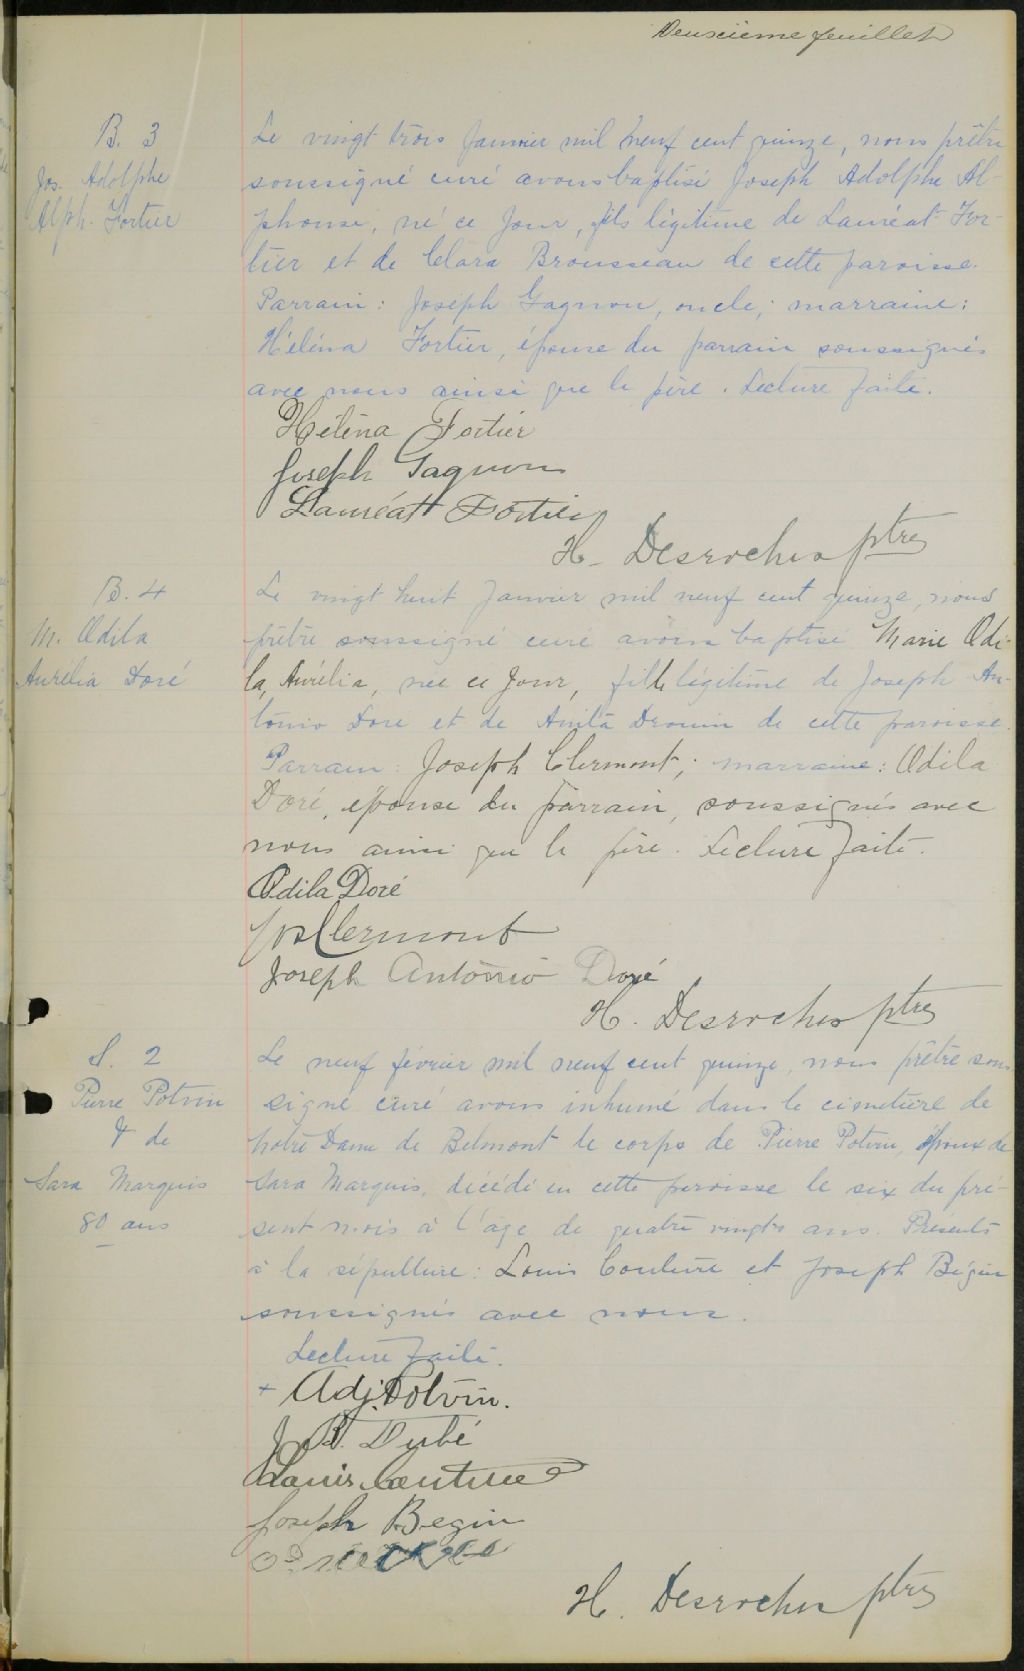 Deuxième feuillet
B. 3
Jos. Adolphe
Alph. Fortier
Le vingt trois Janvier mil neuf cent quinze, nous prêtre
soussigné curé avons baptisé Joseph Adolphe Al-
phonse, né ce jour, fils légitime de Lauréat For-
tier et de Clara Brousseau de cette paroisse.
Parrain : Joseph Gagnon, oncle ; marraine :
Héléna Fortier, épouse du parrain soussignés
avec nous ainsi que le père. Lecture faite.
Héléna Fortier
Joseph Gagnon
Lauréatt Fortier
H. Desroches ptre
B. 4
M. Odila
Aurélia Doré
Le vingt huit Janvier mil neuf cent quinze, nous
prêtre soussigné curé avons baptisé Marie Odi-
la, Aurélia, née ce jour, fille légitime de Joseph An-
tonio Doré et de Anita Drouin de cette paroisse.
Parrain : Joseph Clermont ; marraine : Odila
Doré, épouse du parrain, soussignés avec
nous ainsi que le père. Lecture faite.
Odila Doré
Jos Clermont
Joseph Antonio Doré
H. Desroches ptre
S. 2
Pierre Potvin
& de
Sara Marquis
80 ans
Le neuf février mil neuf cent quinze, nous prêtre sous
signé curé avons inhumé dans le cimetière de
Notre Dame de Belmont le corps de Pierre Potvin, époux de
Sara Marquis, décédé en cette paroisse le six du pré-
sent mois à l'âge de quatre vingts ans. Présents
à la sépulture : Louis Couture et Joseph Bégin
soussignés avec nous.
Lecture faite.
+ Adj. Potvin.
J. B. Dubé
Louis Couture
Joseph Begin
H. Desroches ptre